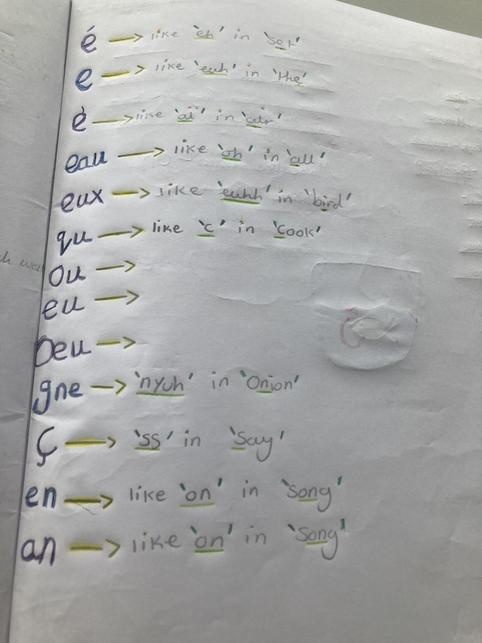 é → like 'eh' in 'set'
e → like 'euh' in 'the'
è → like 'ai' in 'air'
eau → like 'oh' in 'all'
eux → like 'euhh' in 'bird'
qu → like 'c' in 'cook'
ou →
eu →
oeu →
gne → 'nyuh' in 'Onion'
ç → 'ss' in 'Say'
en → like 'on' in 'Song'
an → like 'on' in 'Song'